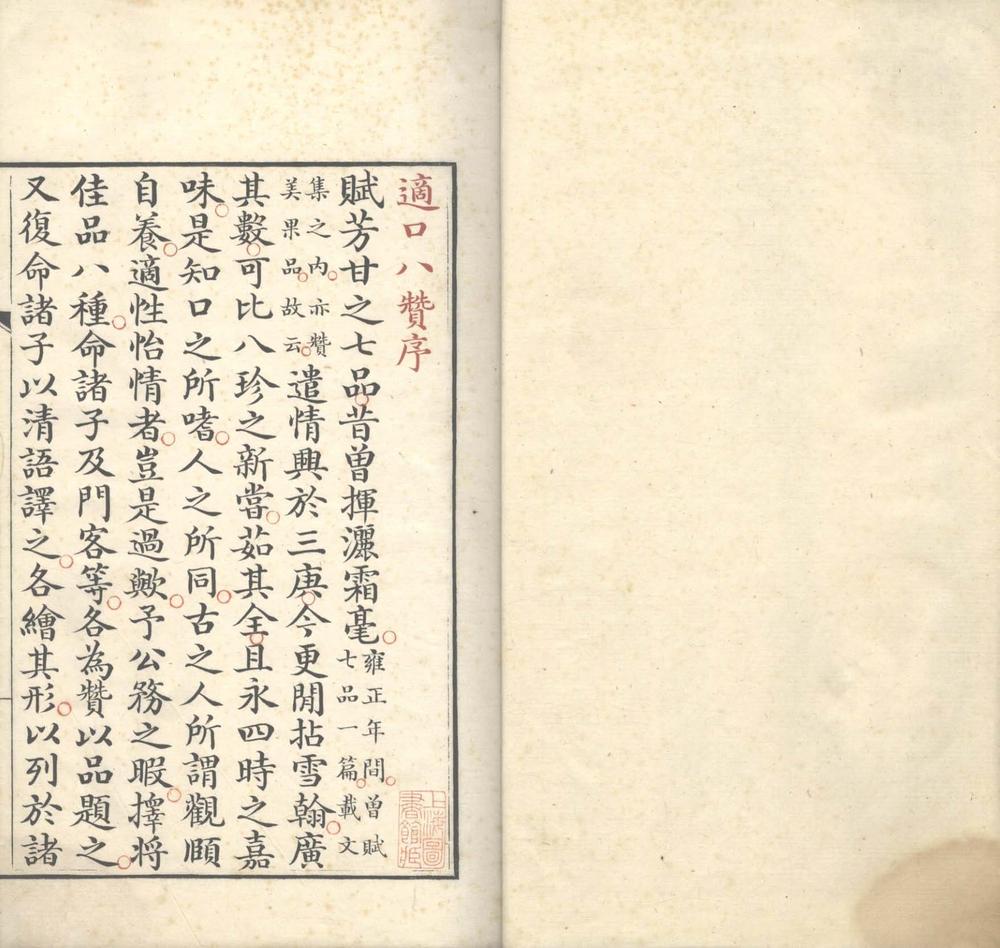 適口八贊序
賦芳甘之七品昔曽揮灑霜毫雍正年間曽賦七品一篇載文
集之内亦贊美果品故云遣情興於三庚今更閒拈雪翰廣
其數可比八珍之新嘗茹其全且永四時之嘉
味是知口之所嗜人之所同古之人所謂觀頤
自養適性怡情者豈是過歟予公務之暇擇將
佳品八種命諸子及門客等各為贊以品題之
又復命諸子以清語譯之各繪其形以列於諸
上海圖書館藏